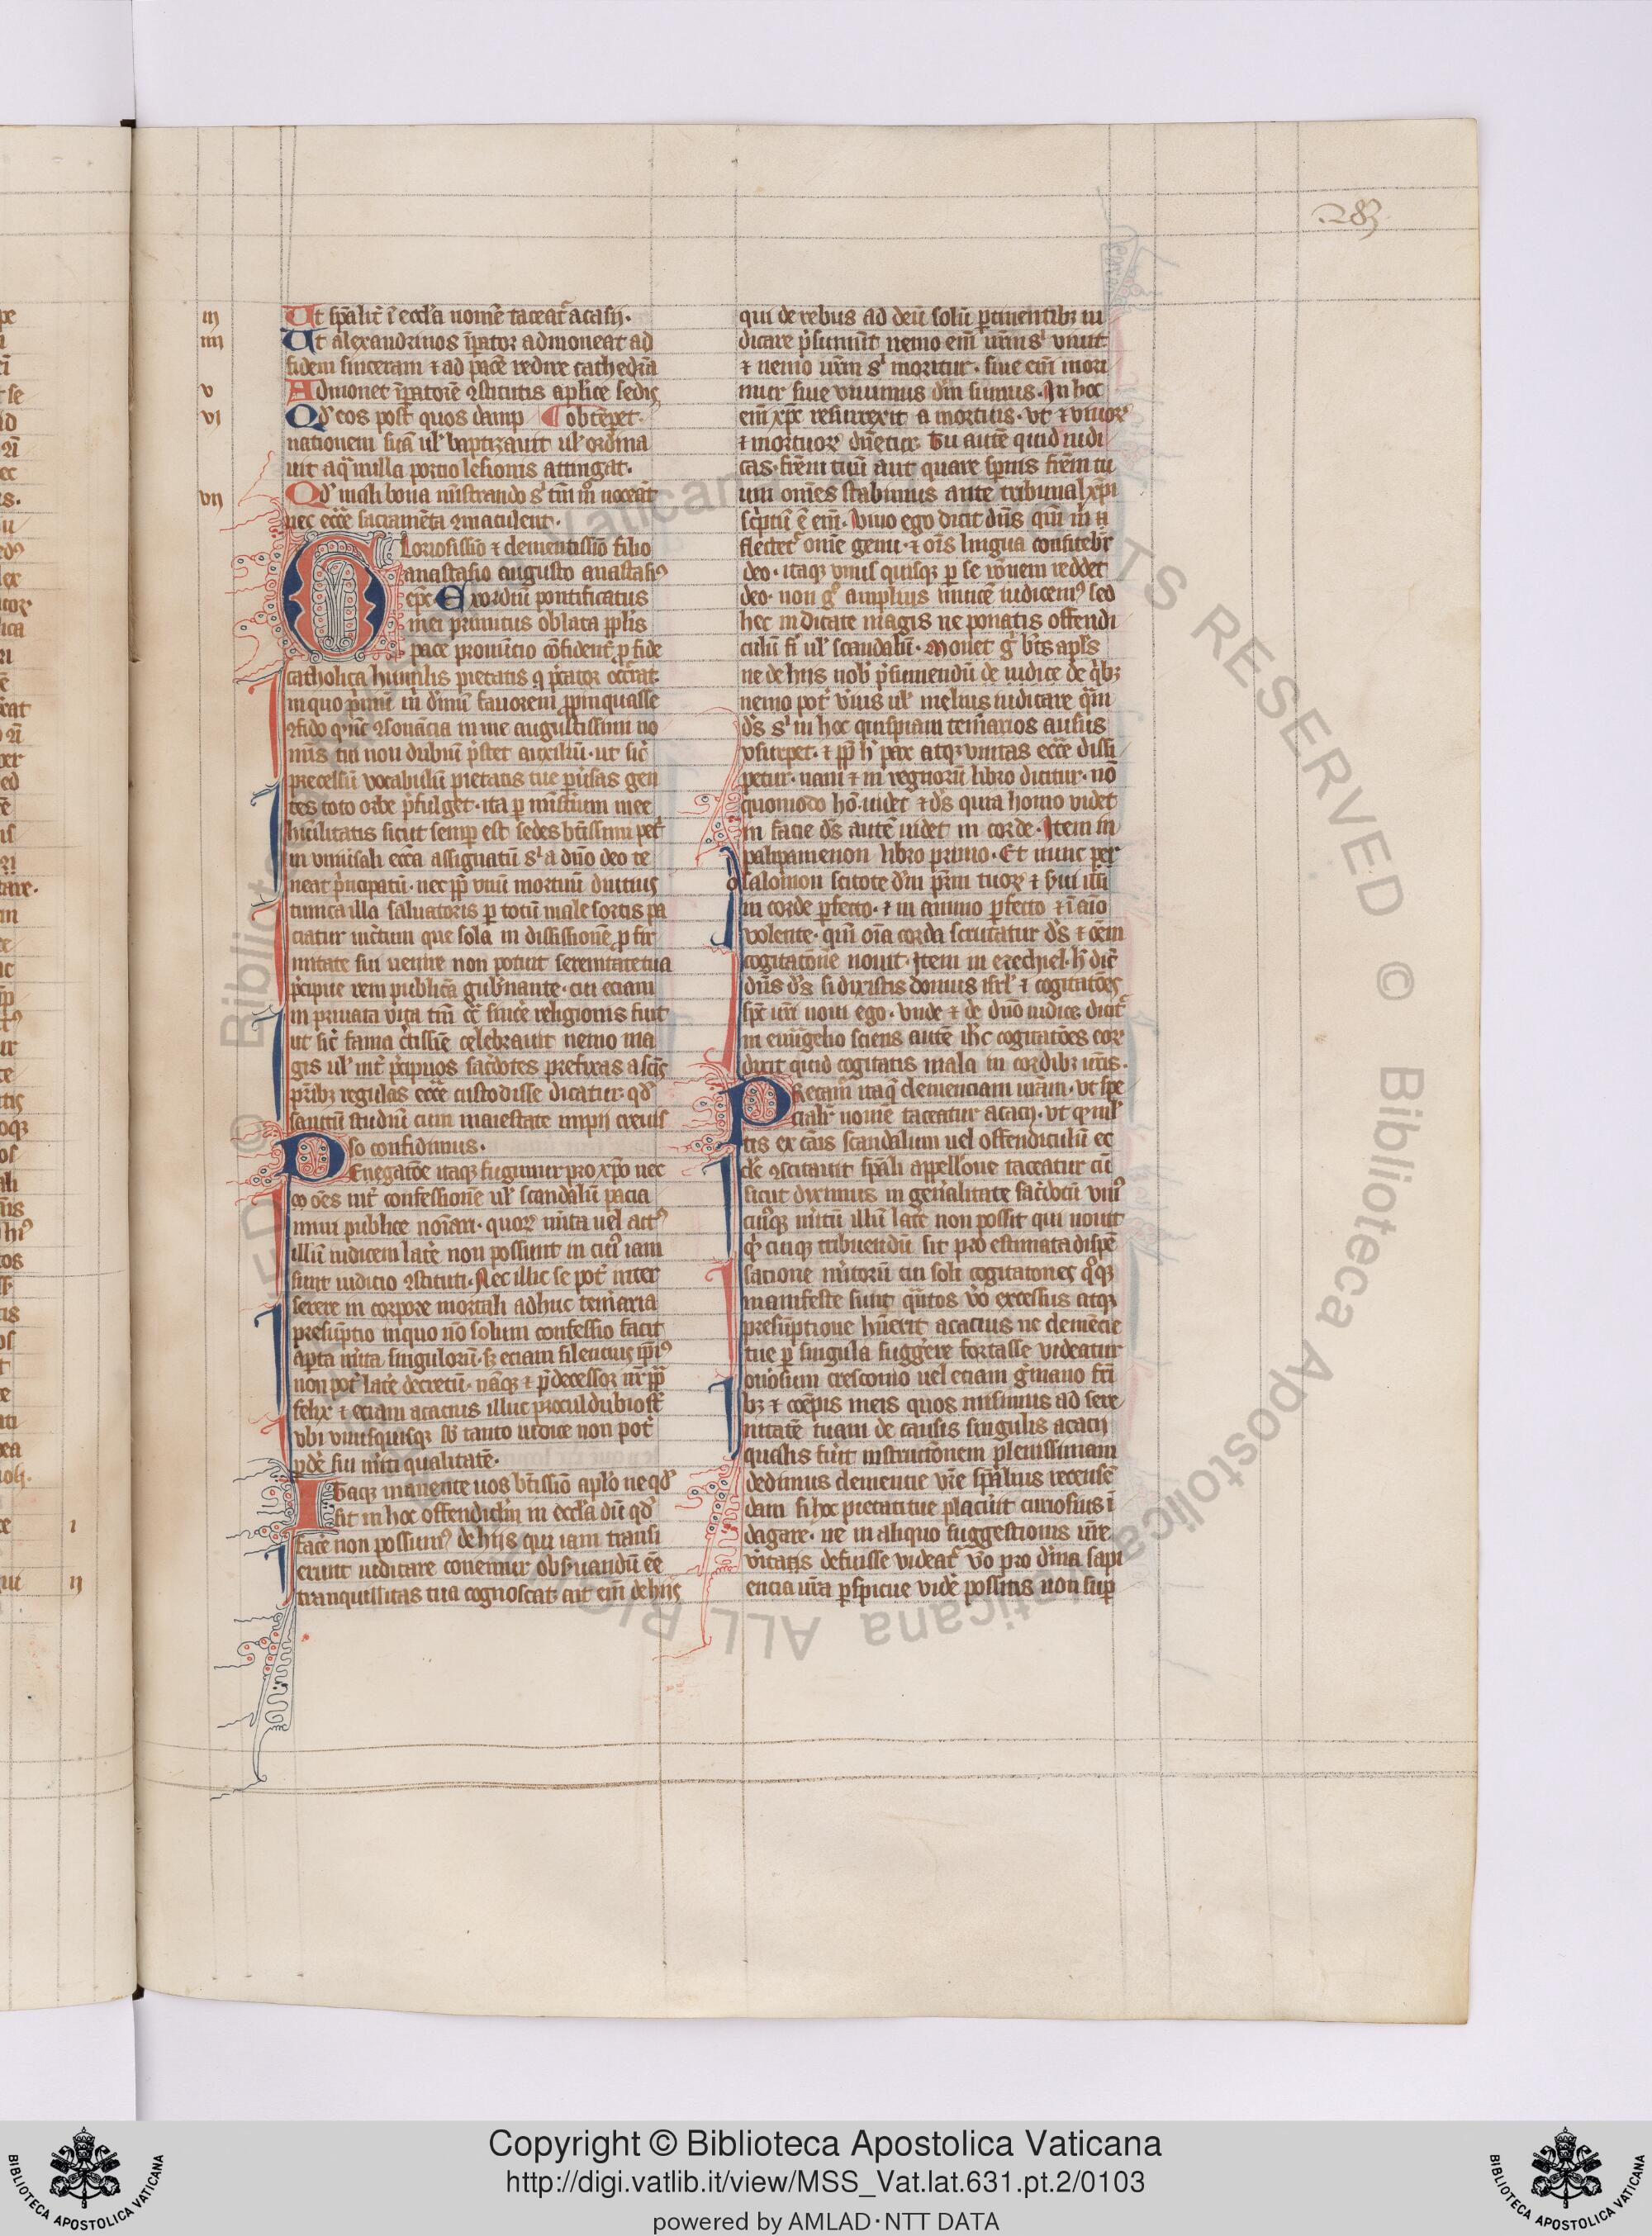 .283.
iii
Ut sp̄alit᷑ ī eccl̄a nomē taceat᷑ acasij.
iiii
Ut alexandrinos īp̄ator admoneat ad
fidem sinceram ⁊ ad pacē redire cathedrā
v
Admonet īp̄atorē ꝯstitutis aplice sedis
vi
Qd̕ eos post quos damp ¶ obtēpet.
nationem suā ul̕ baptizauit ul̕ ordina
uit aq̄ nulla portio lesionis attingat.
vii
Qd̕ mali bona mīstrando s᷑ tm̄ nocea̅t
nec ecc̄e sacramēta ꝯmaculent.
Gloriosissio ⁊ clementissio filio
anastasio augusto anastasiꝰ
ep̄c. Exordiū pontificatus
mei primitus oblata pp̄lis
pace pronūcio cōfident᷑ ꝑ fide
catholica humilis pietatis
in quo primū in dīnū fauorem
ꝯfido ꝙ ꝯsonācia in me augustissimi no
mīs tui non dubiū p̄stet auxiliū. ut sic᷑
precelsū vocabulū pietatis tue ꝑ uīsas gen
tes toto orbe p̄fulget. ita ꝑ mīstriū mee
humilitatis sicut semꝑ est sedes bt̄issimi pet᷑
in vniuersali ecc̄a assignatū s᷑ a dn̄o deo te
neat pᷓncipatū. nec ꝓp̄
tunica illa saluatoris ꝑ totū male sortis pa
ciatur
nitate sui uenire non potuit serenitate tua
p̄cipue rem publicā gub̕nante. cui eciam
in priuata vita tm̄ sincere religionis fuit
ut sic᷑ fama celebrauit nemo ma
gis ul̕ int᷑ p̄cipuos sac̕dotes prefixas a sc̄is
pr̄ibꝫ regulas ecc̄e custodisse dicatur. qd̕
sanctū studiū cum maiestate imꝑij creuis
so confidimus.
Prenegatōe itaqꝫ fugimur pro xp̄o nec
int᷑ confessionē ul̕ scandalū pacia
mini publice noīari. quoꝝ mīta uel actꝰ
illū iudicem late᷑ non possunt in cuiꝰ iam
sunt iudicio ꝯstituti. Nec illic se pot᷑ inter
serere in corpore mortali adhuc temāria
presūptio in quo nō solum confessio facit
apta mīta singulorū. sꝫ eciam silencius ip̄iꝰ
non pot᷑ late᷑ decretū. nāqꝫ ⁊ p̄decessor nr̄
felix ⁊ eciam acacius illic procul dubio st̄
vbi vnusquisqꝫ sb̕ tanto iudice non pot᷑
ꝑde᷑ sui mīti qualitatē.
Itaqꝫ manente uos bt̄issio aplo ne qd̕
sit in hoc offendiclm̄ in eccl̄a dū qd̕
face᷑ non possumꝰ de hiis qui iam transi
erunt iudicare conemur obs̕uandū ēe
tranquillitas tua cognoscat. ait em̄ de hijs
qui de rebus ad deū solū pertinentibꝫ iu
dicare p̄sumūt nemo em̄ vr̄m s᷑ viuit
⁊ nemo vr̄m s᷑ moritur. siue em̄ mori
mur siue viuimus dn̄i sumus. In hoc
em̄ xp̄c resurrexit a mortuis. vt ⁊ viuoꝝ
⁊ mortuoꝝ dn̄etur. Tu autē quid iudi
cas. fr̄em tuū aut quare sp̄nis fr̄em tu
um omēs stabimus ante tribunal xp̄i
sc̕ptū ē em̄. Viuo ego dicit dn̄s qm̄ m̄
flectet᷑ omē genu. ⁊ oīs lingua confitebr̄
deo. itaqꝫ vnus quisqꝫ ꝑ se rōnem reddet
deo. non g᷑ amplius inuicē iudicemꝰ sed
hec iudicate magis ne ponatis offendi
culū fr̄i ul̕ scandalū. Monet g᷑ bt̄s apl̄s
ne de hiis nob̕ p̄sumendū de iudice de qᷓbꝫ
nemo pot᷑ verius ul̕ melius iudicare qᷓm
ds̄ s᷑ in hoc quispiam temārios ausus
vsurpet. ⁊ ꝓp̄ h̕ pax atqꝫ vnitas ecc̄e dissi
petur. nam ⁊ in regnorū libro dicitur. nō
quomodo hō. uidet ⁊ ds̄ quia homo videt
in facie ds̄ autē uidet in corde. Item in
palipamenon libro primo. Et nunc per
salomon scitote dm̄ pr̄m tuoꝝ ⁊ s̕ui illi
in corde ꝑfecto. ⁊ in animo ꝑfecto ⁊ ī aīo
volente. qm̄ oīa corda scrutatur ds̄ ⁊ oēm
cogitacōnē nouit. Item in ezechiel. h̕ dic᷑
dn̄s ds̄ si dixistis domus isrl̕ ⁊ cogitatōes
sp̄c ur̄i noui ego. vnde ⁊ de dn̄o iudice dicit᷑
in euāngelio sciens autē ih̄c cogitatōes eoꝝ
dixit quid cogitatis mala in cordibꝫ ur̄is.
Precam̄ itaqꝫ clemenciam ur̄am. vt spe
cialit᷑ nomē taceatur acacij. vt
tis ex cāis scandalum uel offendiculū ec
cl̄e ꝯscitauit sp̄ali appell̄one taceatur cū
sicut diximus in gen̕alitate sac̕dotū vniꝰ
cuiꝰqꝫ mītū illū late᷑ non possit qui nouit
cuiqꝫ tribuendū sit pro estimata dispē
sacione mītorū cui soli cogitatones qᷓqꝫ
manifeste sunt qᷓntos vo excessus atqꝫ
presūptione hūerit acacius ne clemēcie
tue ꝑ singula suggere fortasse videatur
onosum cresconio uel etiam g̕mano fr̄i
bꝫ ⁊ coēpis meis quos misimus ad sere
nitatē tuam de causis singulis acacij
qualis fuit instructōnem plenissimam
dedimus clemencie vr̄e sp̄alius recensē
dam si hoc pietati tue placuit curiosius ī
dagare. ne in aliquo suggestionis nr̄e
vitatis defuisse videat᷑ vo pro dīna sapi
encia ur̄a ꝑspicue vide᷑ possitis non suꝑ
vii
i
ii
Copyright © Biblioteca Apostolica Vaticana
http://digi.vatlib.it/view/MSS_Vat.lat.631.pt.2/0103
powered by AMLAD·NTT DATA
BIBLIOTECA APOSTOLICA VATICANA
BIBLIOTECA APOSTOLICA VATICANA
© Biblioteca Apostolica Vaticana ALL RIGHTS RESERVED